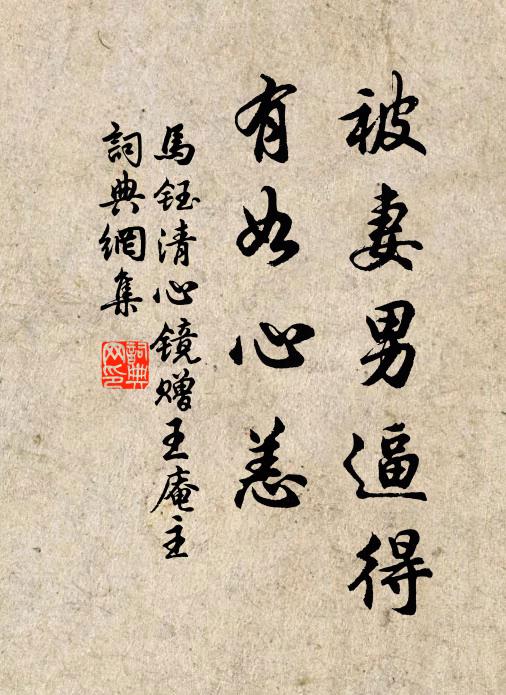 被妻男逼得
有如心恙
馬鈺清心镜赠王庵主
詞典網集
詞典網印